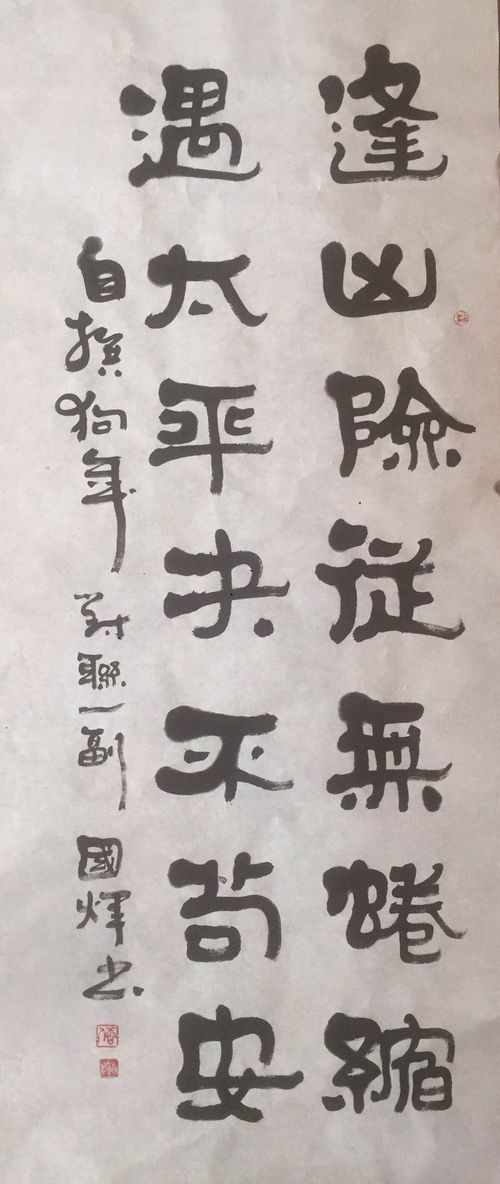 逢凶險從無蜷縮
遇太平決不苟安
自撰狗年對聯一副 國煇書